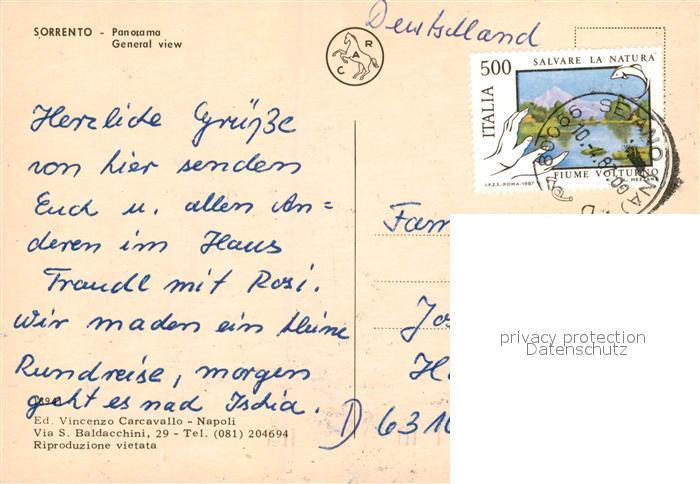 SORRENTO - Panorama
General view
CAR
Deutschland
500
SALVARE LA NATURA
ITALIA
FIUME VOLTURNO
I.P.Z.S.-ROMA-1987
80066 SEIANO (NA)
Herzliche Grüße
von hier senden
Euch u. allen An=
deren im Haus
Traudl mit Rosi.
Wir machen ein kleine
Rundreise, morgen
geht es nach Ischia.
Fam
Jos
H
D 6310
privacy protection
Datenschutz
Ed. Vincenzo Carcavallo - Napoli
Via S. Baldacchini, 29 - Tel. (081) 204694
Riproduzione vietata